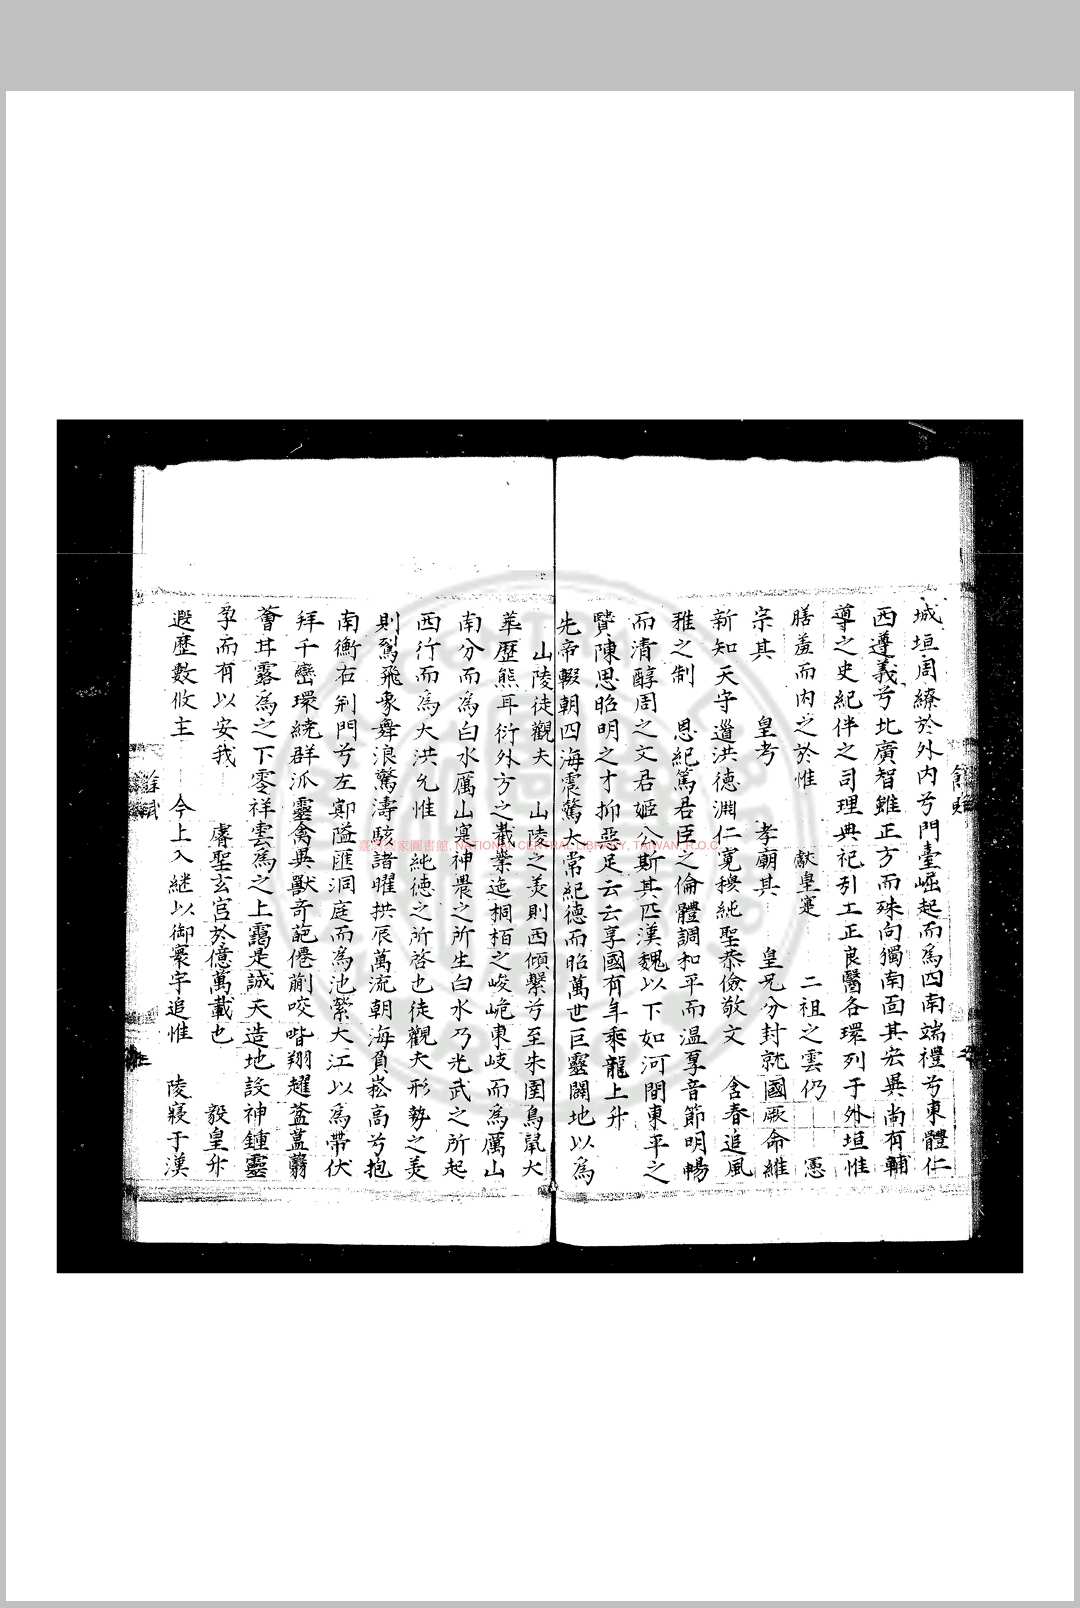 城垣周繚於外内兮門臺崛起而爲四南端禮兮東體仁
西遵義兮北廣智雖正方而殊向獨南面其宏異尚有輔
導之史紀伴之司理典祀列工正良醫各環列于外垣惟
膳羞而内之於惟 獻皇寔 二祖之雲仍 憲
宗其 皇考 孝廟其 皇兄分封就國厥命維
新知天守邇洪德淵仁寬穆純聖恭儉敬文 含春追風
雅之制 恩紀篤君臣之倫體調和平而溫厚音節明暢
而清醇周之文君姬公斯其匹漢魏以下如河間東平之
賢陳思昭明之才抑惡足云云享國有年乘龍上升
先帝輟朝四海震驚太常紀德而昭萬世巨靈闢地以爲
山陵徒觀夫 山陵之美則西傾繫兮至朱圉鳥鼠大
華歷熊耳衍外方之嶻嶪迤桐栢之峻峗東岐而爲厲山
南分而爲白水厲山寔神農之所生白水乃光武之所起
西行而爲大洪允惟 純德之所啓也徒觀夫形勢之美
則鸑飛象舞浪驚濤駭諸曜拱辰萬流朝海負崧高兮抱
南衡右荆門兮左鄳隘匯洞庭而爲池縈大江以爲帶伏
拜千巒環繞群派靈禽異獸奇葩僊蒯咬喈翔趯蓋藍蘙
薈甘露爲之下零祥雲爲之上靄是誠天造地設神鍾靈
孕而有以安我 睿聖玄宫於億萬載也 毅皇升
遐歷數攸主 今上入継以御寰宇追惟 陵寢于漢
臺灣國家圖書館, NATIONAL CENTRAL LIBRARY, TAIWAN, R.O.C